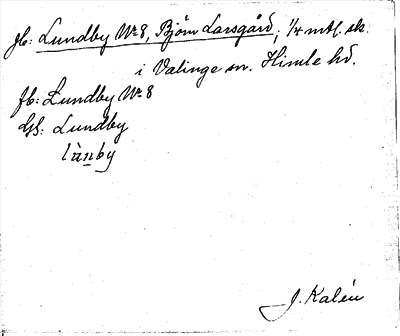 Jb: Lundby Nr 8, Björn Larsgård, 1/4 mtl. sk.
i Valinge sn. Himle hd.
Jb: Lundby Nr 8
GS: Lundby
lànby
J. Kalén